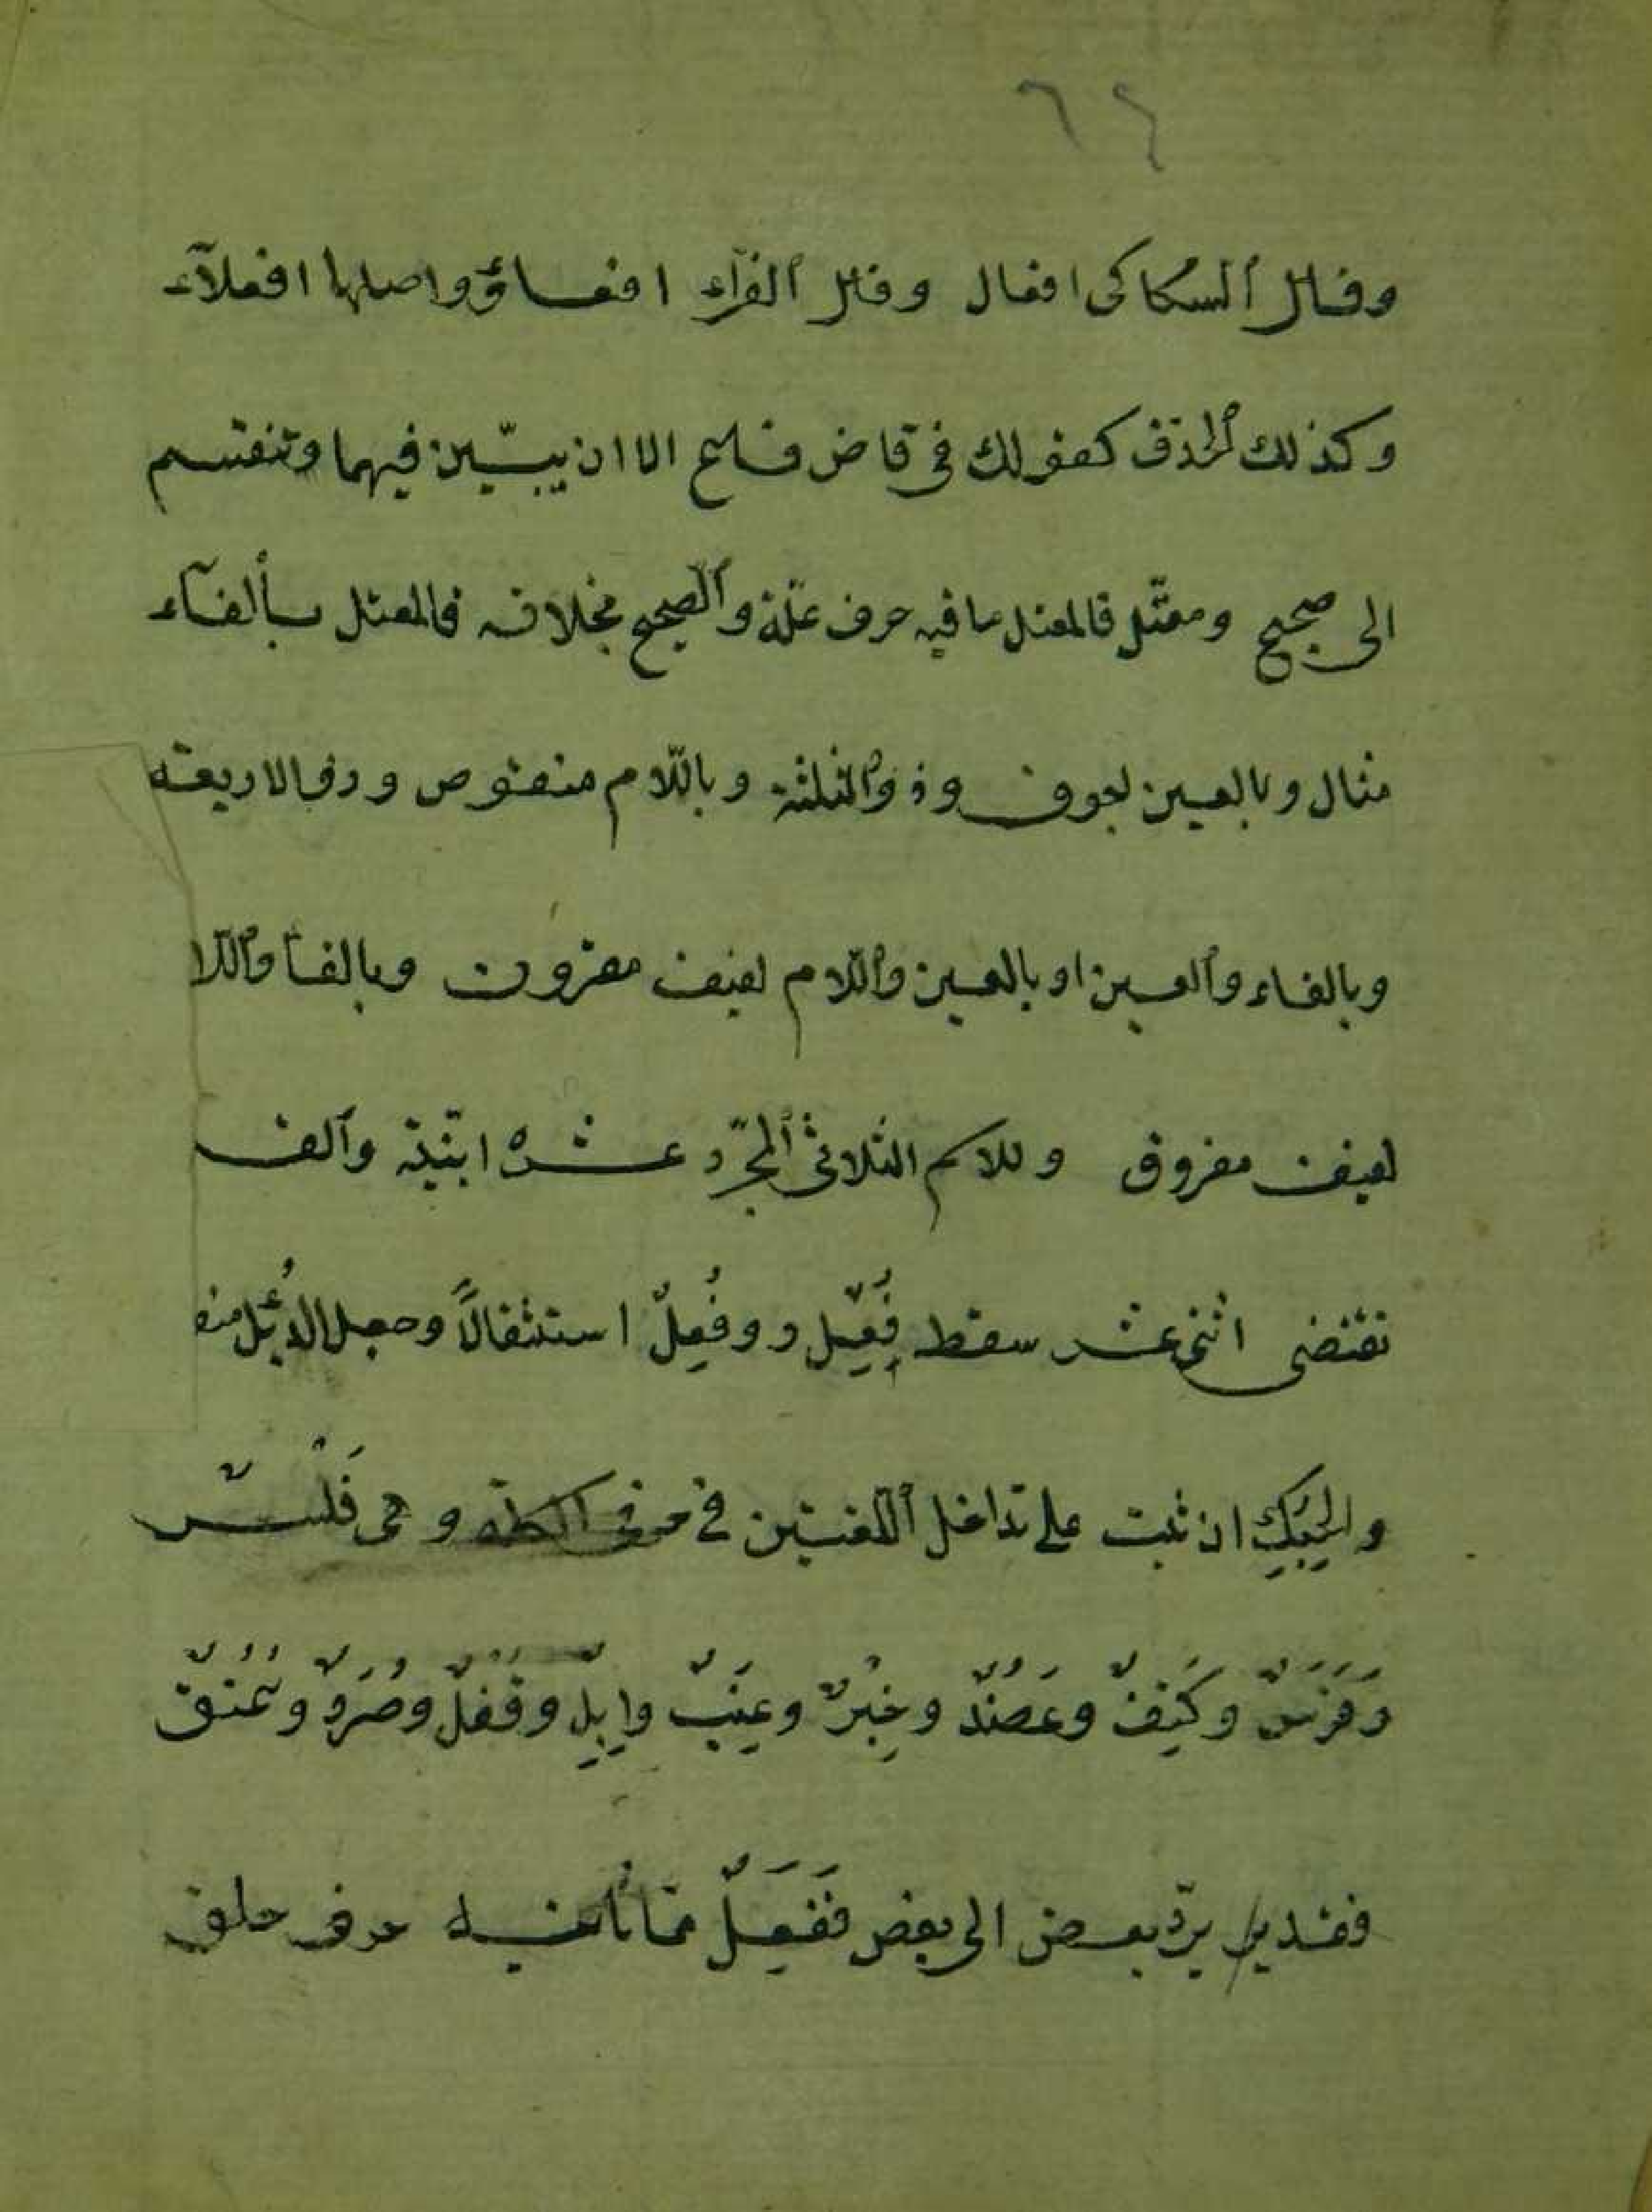 ٦٤
وقال السكاكى افعال وقال الفرآء افعاؤ واصلها افعلآء
وكذلك الحذف كقولك فى قاض فلع الا ان يبيّن فيهما وتنقسم
الى صحيح ومعتّل فالمعتل ما فيه حرف علّة والصحيح بخلافه فالمعتل بالفآء
مثال وبالعين اجوف وذو الثلثة وباللّام منقوص وذو الاربعة
وبالفاء والعين او بالعين واللّام لفيف مقرون وبالفأ واللّا
لفيف مفروق وللاسم الثلاثى المجرّد عشرة ابنية والق
تقتضى اثنى عشر سقط فُعِلٌ و وفُعِلٌ استثقالاً وجعل الدُئِل منقو
والحِبُكِ ان ثبت على تداخل اللّغتين فى حرفى الكلمة و هى فَلْسٌ
وفَرَسٌ وكَتِفٌ وعَضُدٌ وحِبْرٌ وعِنَبٌ وإبِلٍ وقُفْلٌ وصُرَدٌ وعُنُقٌ
فقد يردّ بعض الى بعض ففَعِلٌ ممّا ثانيه حرف حلق